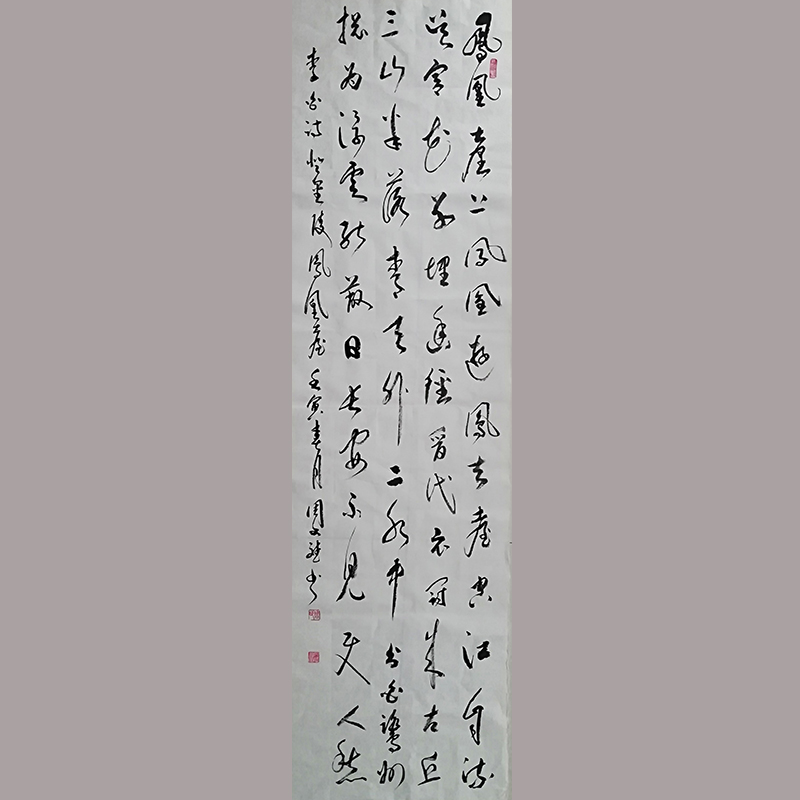 鳳凰臺上鳳凰遊鳳去臺空江自流
吴宫花草埋幽徑晉代衣冠成古丘
三山半落青天外二水中分白鷺洲
總為浮雲能蔽日長安不見使人愁
李白詩登金陵鳳凰臺壬寅春月周文书